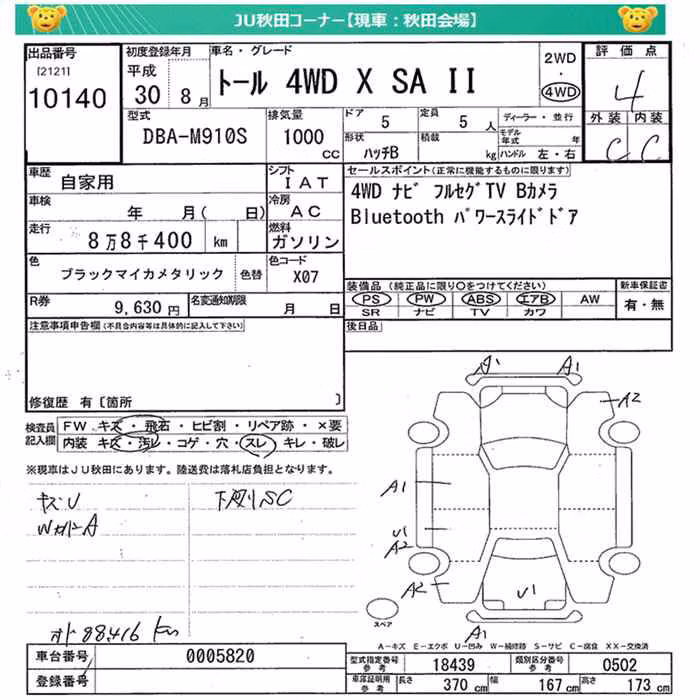 JU秋田コーナー【現車：秋田会場】
出品番号
[2121]
10140
初度登録年月
平成
30 8月
車名・グレード
トール 4WD X SA II
2WD
・
4WD
評価点
4
外装 内装
C C
型式
DBA-M910S
排気量
1000
cc
ドア
5
定員
5 人
形状
ハッチB
積載
kg
ディーラー・並行
モデル年式 年
ハンドル 左・右
車歴
自家用
シフト
IAT
車検
年 月( 日)
冷房
AC
走行
8万8千400 km
燃料
ガソリン
色
ブラックマイカメタリック
色替
色コード
X07
R券
9,630円
名変通知期限
月 日
セールスポイント(正常に機能するものに限ります)
4WD ナビ フルセグTV Bカメラ
Bluetooth パワースライドドア
装備品(純正品に限り○をつけてください)
PS PW ABS エアB AW
SR ナビ TV カワ
新車保証書
有・無
後日品
注意事項申告欄(不具合内容等は具体的に記入して下さい)
修復歴 有〔箇所 〕
検査員
記入欄
FW キズ・飛石・ヒビ割・リペア跡・×要
内装 キズ・汚レ・コゲ・穴・スレ・キレ・破レ
※現車はJU秋田にあります。陸送費は落札店負担となります。
キズU
下廻りSC
オド88416 km
A1 A1
A2
A1
U1
A2
A2
U1
A1
スペア
A-キズ E-エクボ U-凹み W-補修跡 S-サビ C-腐食 XX-交換済
車台番号 0005820
登録番号
型式指定番号
参考
18439
類別区分番号
参考
0502
車庫証明用
参考
長さ 370 cm
幅 167 cm
高さ 173 cm